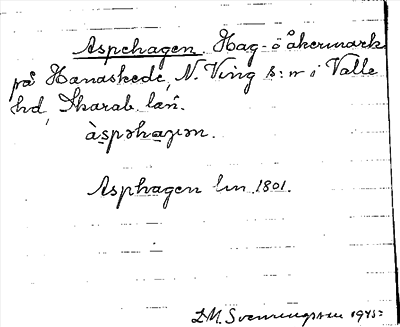 Aspehagen. Hag- o åkermark
på Hanaskede, N. Ving s:n i Valle
hd, Skarab. län.
àspəhaɡən.
Asphagen lm 1801.
D.M. Svenningsson 1945